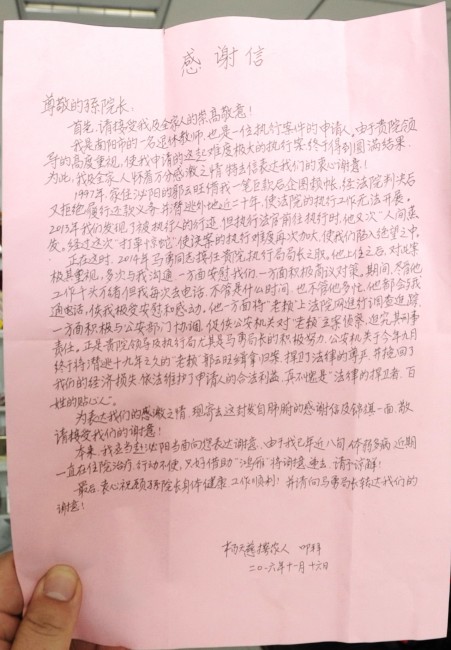 感谢信
尊敬的孙院长：
首先，请接受我及全家人的崇高敬意！
我是南阳市的一名退休教师，也是一位执行案件的申请人。由于贵院领
导的高度重视，使我申请的这起难度极大的执行案终于得到圆满结果，
为此，我及全家人怀着万分感激之情特去信表达我们的衷心谢意！
1997年，家住沈阳的郭云旺借我一笔巨款后企图赖帐，经法院判决后
又拒绝履行还款义务并潜逃外地近二十年，使法院的执行工作无法开展。
2013年我们发现了被执行人的行迹，但执行法官前往执行时，他又次“人间蒸
发。经过这次“打草惊蛇”使该案的执行难度再次加大，使我们陷入绝望之中。
正在这时，2014年马勇同志接任贵院执行局局长之职。他上位之后，对此案
极其重视，多次与我沟通，一方面安慰我们，一方面积极商议对策。期间，尽管他
工作千头万绪但我每次去电话，不管是什么时间，也不管他多忙，他都会找
通电话，使我极受安慰和感动。他一方面将“老赖”上法院网进行调查追踪，
一方面积极与公安部门协调，促使公安机关对“老赖”立案侦察，追究其刑事
责任。正是贵院领导及执行局尤其是马勇局长的积极努力，公安机关于今年九月
终于将潜逃十九年之久的“老赖”郭云旺缉拿归案，捍卫了法律的尊严，并挽回了
我们的经济损失，依法维护了申请人的合法利益，真不愧是“法律的捍卫者，百
姓的贴心人”。
为表达我们的感激之情，现寄去这封发自肺腑的感谢信及锦旗一面，敬
请接受我们的谢意！
本来，我去当赴沈阳当面向您表达谢意，由于我已年近八旬，体弱多病，近期
一直在住院治疗，行动不便，只好借助“鸿雁”将谢意送去，请予谅解！
最后，衷心祝愿孙院长身体健康，工作顺利！并请向马勇局长转达我们的
谢意！
叩拜
二〇一六年十一月十六日